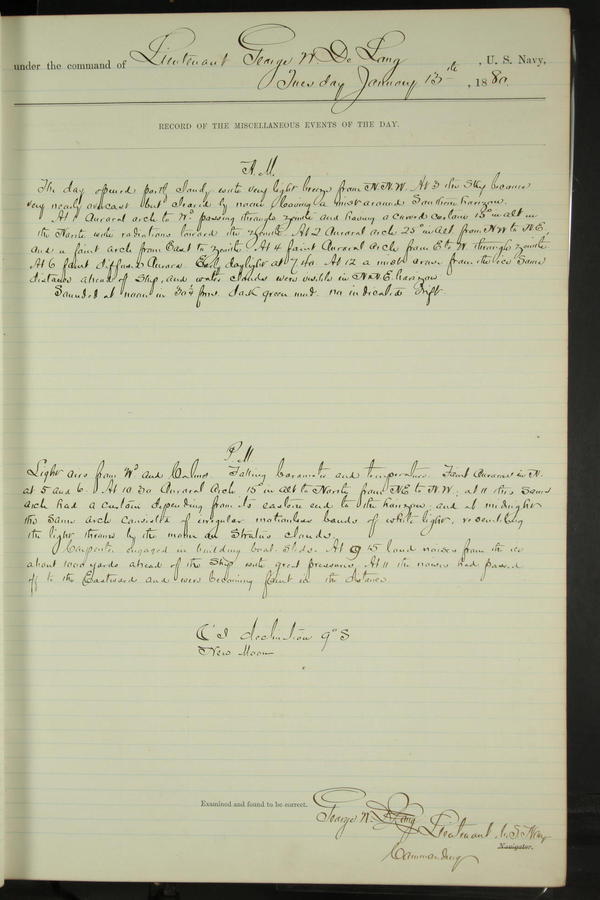 under the command of Lieutenant George W. De Long, U. S. Navy,
Tuesday January 13th, 1880.
RECORD OF THE MISCELLANEOUS EVENTS OF THE DAY.
A.M.
The day opened partly cloudy with very light breeze from N.N.W. At 3 the sky became
very nearly overcast but cleared by noon leaving a mist around Southern horizon.
At 1 Auroral arch to Wd passing through zenith and having a curved column 15° in alt in
the North with radiations toward the zenith. At 2 Auroral arch 25° in alt. from NW to NE,
and a faint arch from East to zenith. At 4 faint Auroral Arch from E to W through zenith.
At 6 faint diffused Aurora. Early daylight at 7 40. At 12 a mist arose from the ice some
distance ahead of Ship, and water clouds were visible in N.N.E. horizon
Sounded at noon in fms. dark green mud. no indicated drift.
P.M
Light airs from Wd and Calms. Falling barometer and temperature. Faint Auroras in N.
at 5 and 6. At 10 30 Auroral Arch 15° in alt to North from NE to N.W; at 11 the same
arch had a curtain depending from its eastern end to the horizon, and at midnight
the same arch consisted of irregular motionless bands of white light, resembling
the light thrown by the moon on Stratus clouds.
Carpenter engaged in building boat sleds. At 9 45 loud noises from the ice
about 1000 yards ahead of the Ship with great pressure. At 11 the noises had passed
off to the Eastward and were becoming faint in the distance
declination 9° S
New Moon
Examined and found to be correct.
George W. De Long Lieutenant U.S. Navy
Navigator.
Commanding